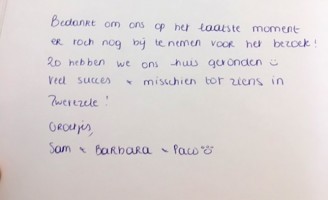 Bedankt om ons op het laatste moment
er toch nog bij te nemen voor het bezoek!
Zo hebben we ons thuis gevonden ☺
Veel succes & misschien tot ziens in
Zwevezele!
Groetjes,
Sam & BARBARA & Paco ☺